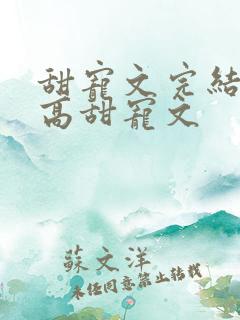 甜寵文完結
高甜寵文
蘇文洋
未经同意禁止转载